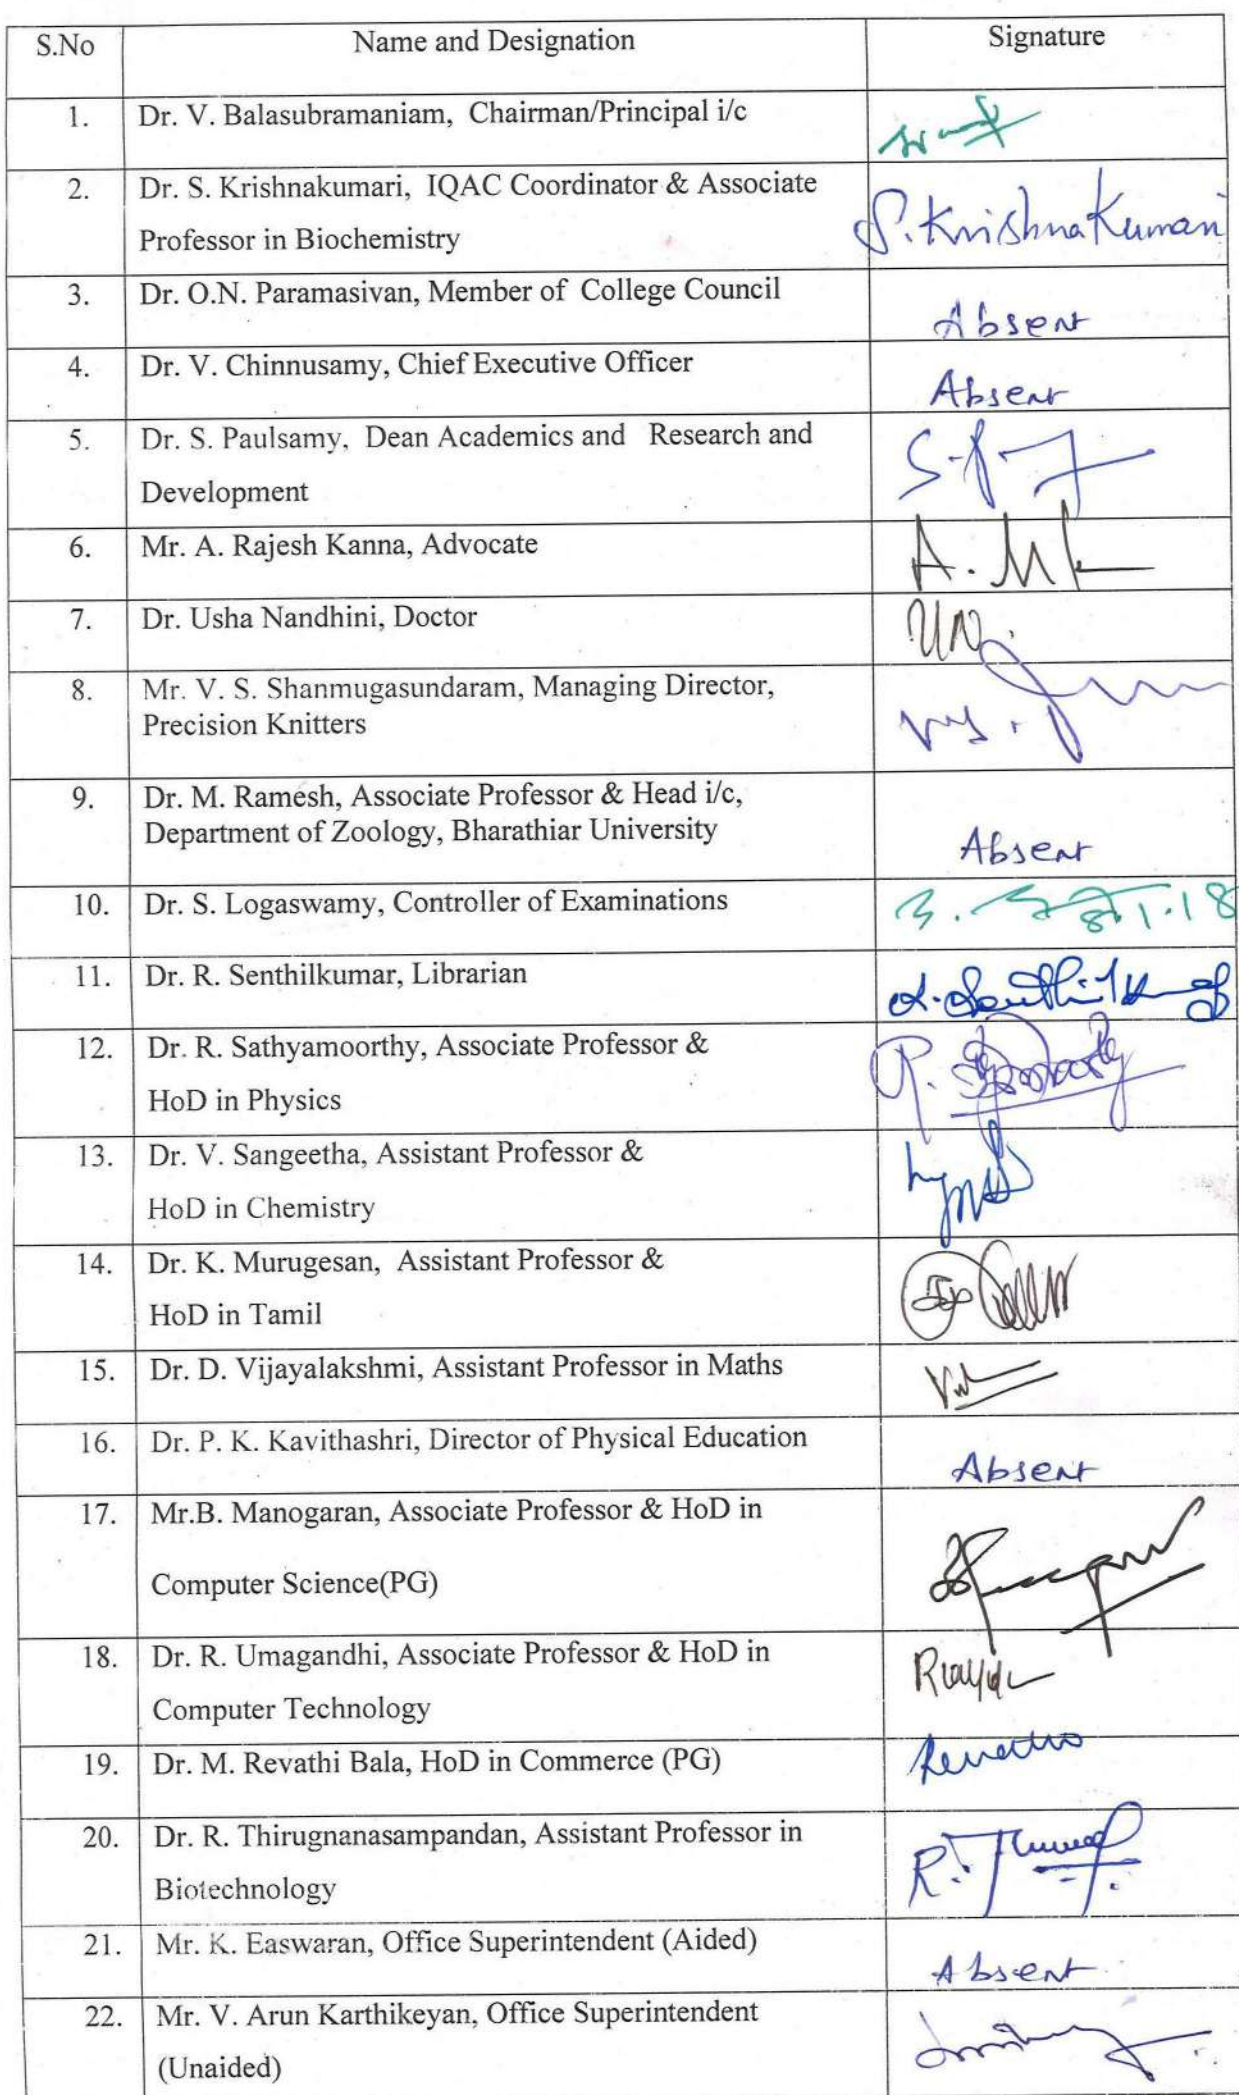 S.No Name and Designation Signature
1. Dr. V. Balasubramaniam, Chairman/Principal i/c
2. Dr. S. Krishnakumari, IQAC Coordinator & Associate
Professor in Biochemistry
S. KrishnaKumari
3. Dr. O.N. Paramasivan, Member of College Council
Absent
4. Dr. V. Chinnusamy, Chief Executive Officer
Absent
5. Dr. S. Paulsamy, Dean Academics and Research and
Development
6. Mr. A. Rajesh Kanna, Advocate
7. Dr. Usha Nandhini, Doctor
8. Mr. V. S. Shanmugasundaram, Managing Director,
Precision Knitters
9. Dr. M. Ramesh, Associate Professor & Head i/c,
Department of Zoology, Bharathiar University
Absent
10. Dr. S. Logaswamy, Controller of Examinations
8.1.18
11. Dr. R. Senthilkumar, Librarian
12. Dr. R. Sathyamoorthy, Associate Professor &
HoD in Physics
13. Dr. V. Sangeetha, Assistant Professor &
HoD in Chemistry
14. Dr. K. Murugesan, Assistant Professor &
HoD in Tamil
15. Dr. D. Vijayalakshmi, Assistant Professor in Maths
16. Dr. P. K. Kavithashri, Director of Physical Education
Absent
17. Mr.B. Manogaran, Associate Professor & HoD in
Computer Science(PG)
18. Dr. R. Umagandhi, Associate Professor & HoD in
Computer Technology
19. Dr. M. Revathi Bala, HoD in Commerce (PG)
20. Dr. R. Thirugnanasampandan, Assistant Professor in
Biotechnology
21. Mr. K. Easwaran, Office Superintendent (Aided)
Absent
22. Mr. V. Arun Karthikeyan, Office Superintendent
(Unaided)